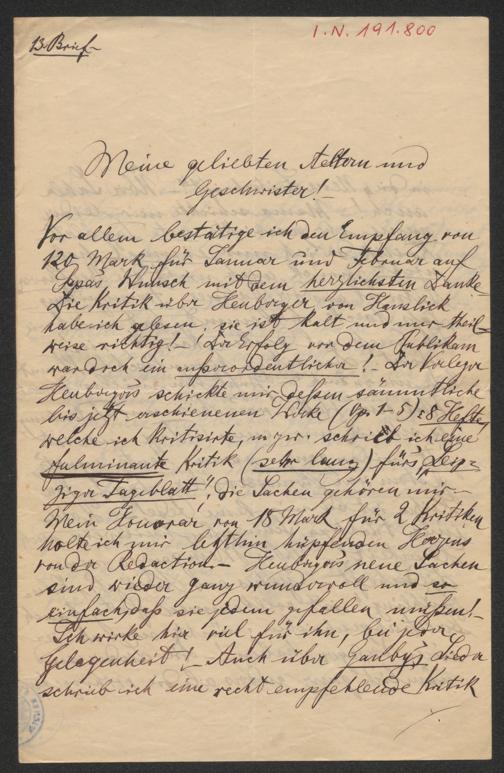 I.N. 191.800
13. Brief.
Meine geliebten Aeltern und
Geschwister!
Vor allem bestätige ich den Empfang von
120 Mark für Januar und Februar auf
Papas Wunsch mit dem herzlichsten Danke.
Die Kritik über Heuberger von Hanslick
habe ich gelesen, sie ist kalt und nur theil-
weise richtig! – Der Erfolg vor dem Publikum
war doch ein außerordentlicher! – Der Verleger
Heubergers schickte mir dessen sämmtliche
bis jetzt erschienenen Werke (Op. 1–5) 8 Hefte,
welche ich kritisirte, u. zw. schrieb ich eine
fulminante Kritik (sehr lang) fürs "Leip-
ziger Tageblatt", die Sachen gehören mir.
Mein Honorar von 18 Mark für 2 Kritiken
holte ich mir letzthin hüpfenden Herzens
von der Redaction. – Heubergers neue Sachen
sind wieder ganz wundervoll und so
einfach, daß sie jedem gefallen müßen! –
Ich wirke hier viel für ihn, bei jeder
Gelegenheit! – Auch über Gauby's Lieder
schrieb ich eine recht empfehlende Kritik